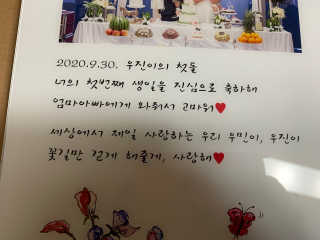 2020.9.30. 우진이의 첫돌
너의 첫번째 생일을 진심으로 축하해
엄마아빠에게 와줘서 고마워♥
세상에서 제일 사랑하는 우리 우민이, 우진이
꽃길만 걷게 해줄게, 사랑해♥